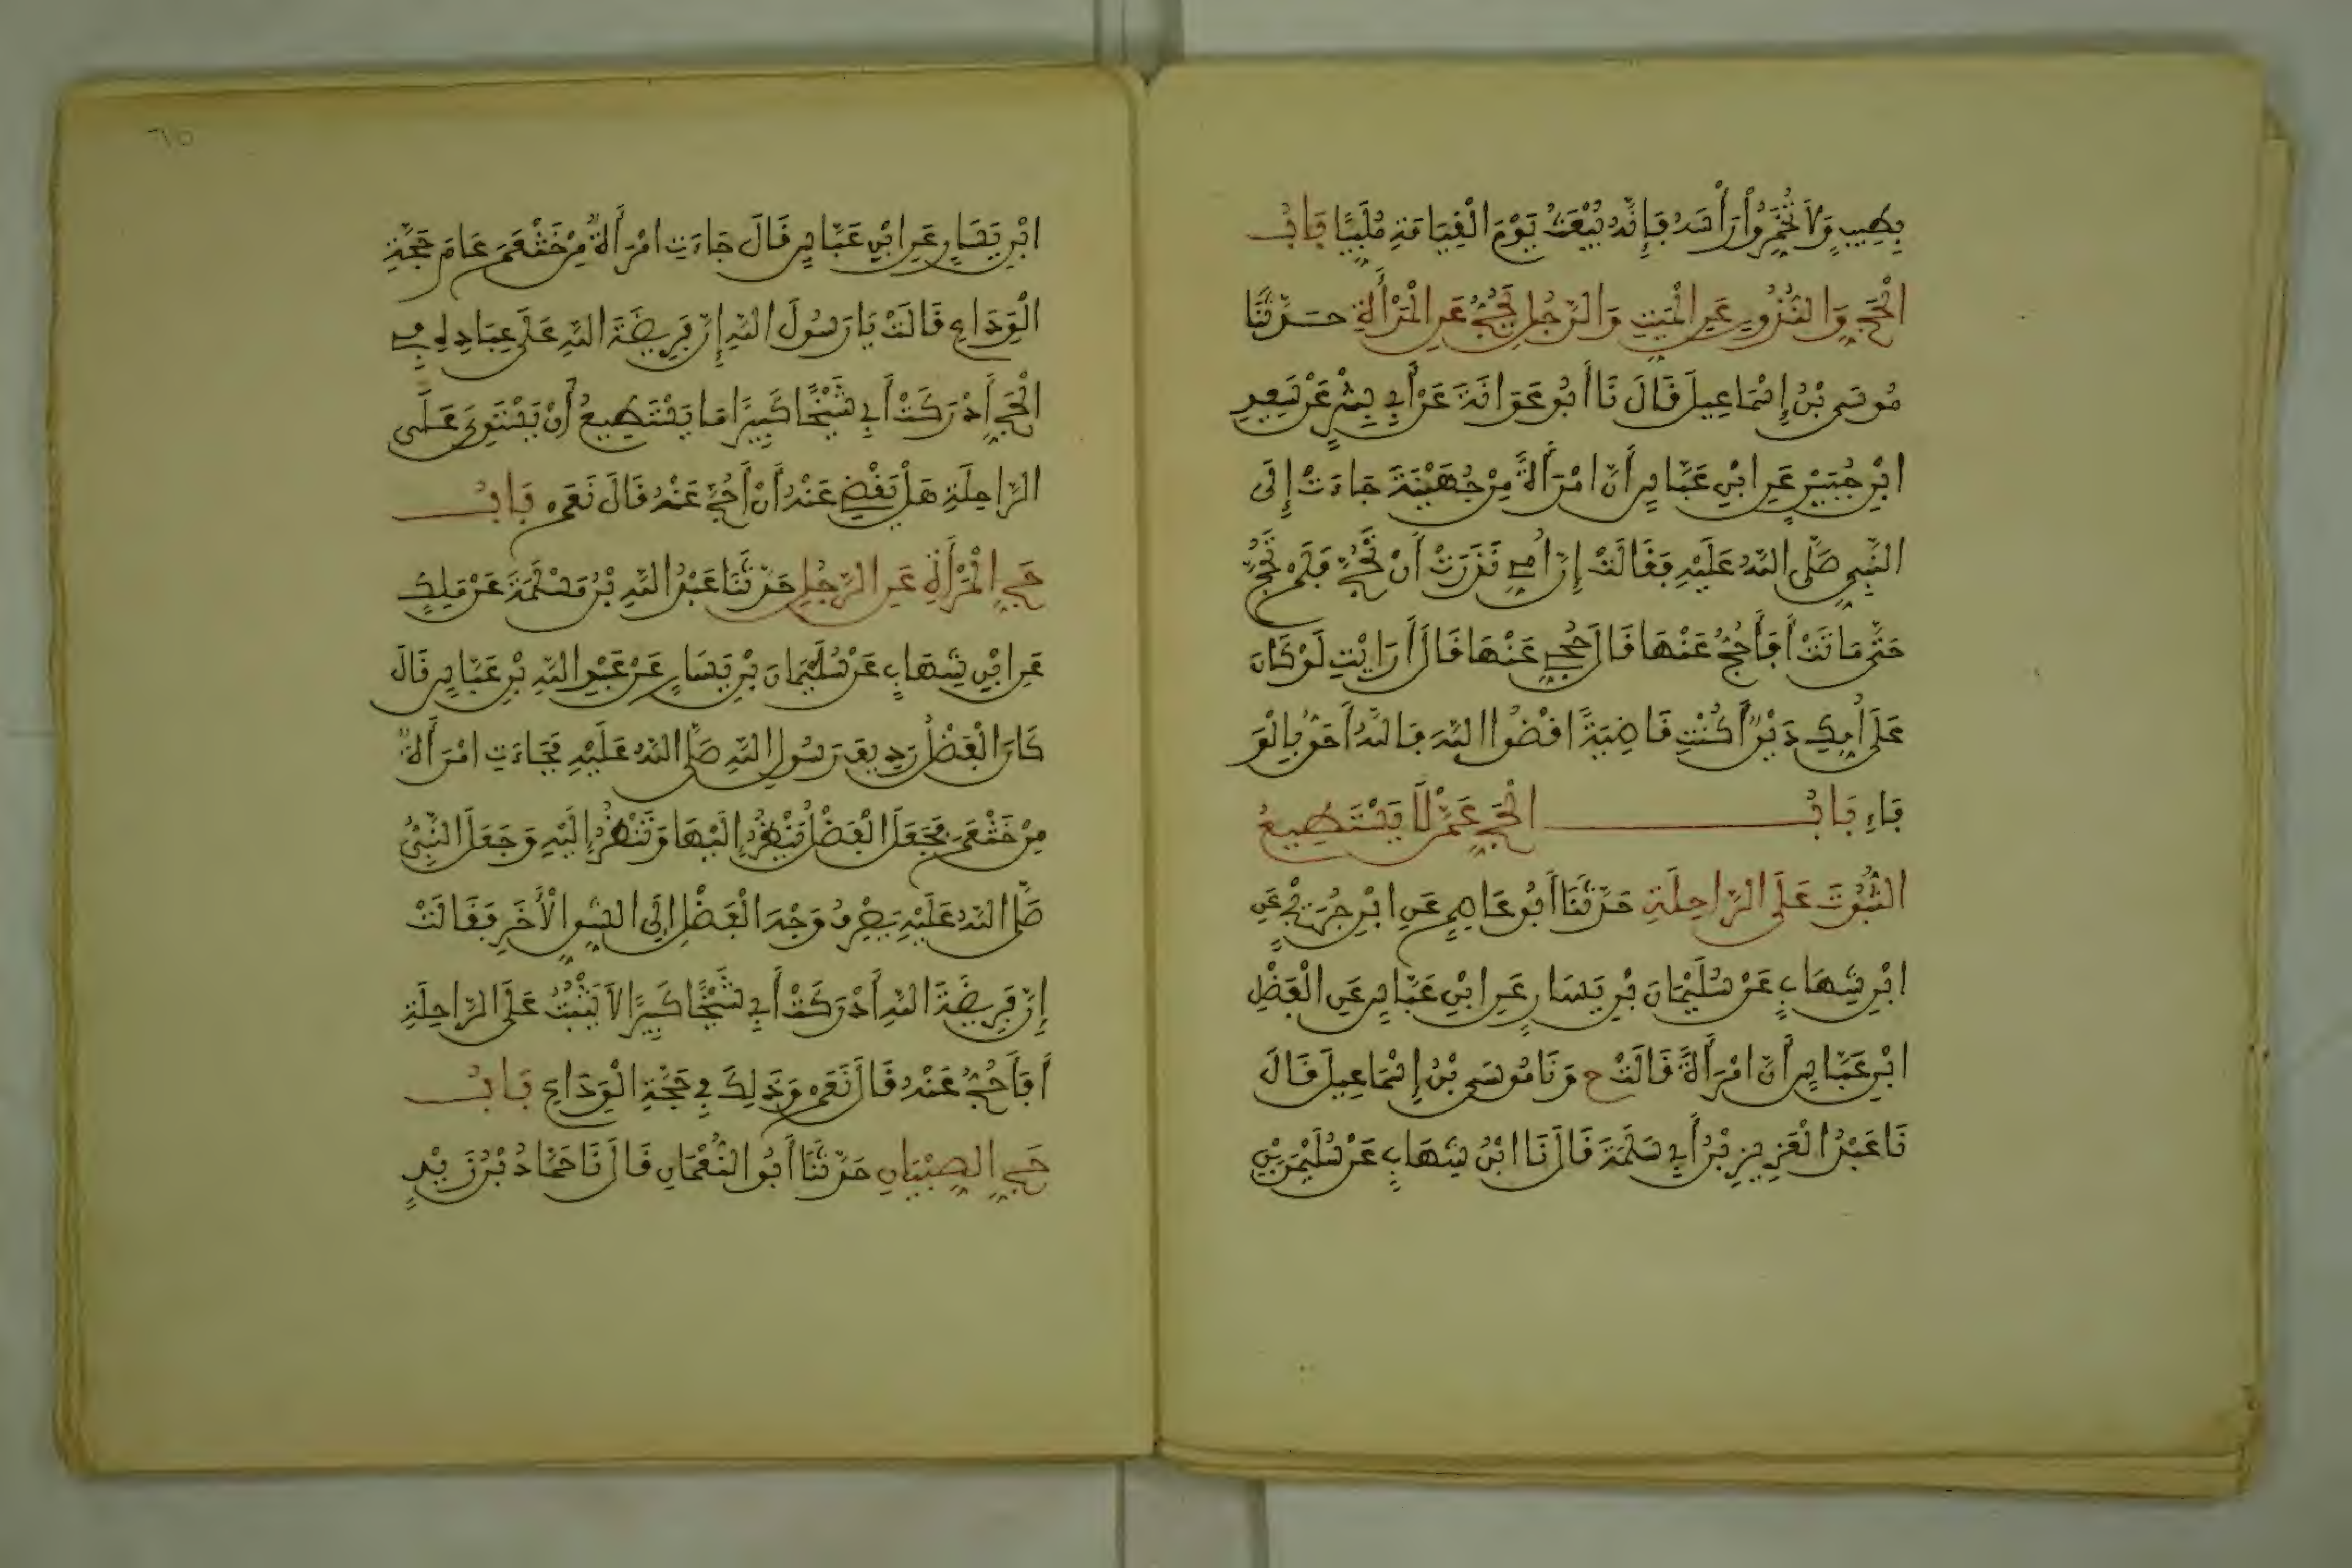 بِطِيبٍ وَلَا تُخَمِّرُوا رَأْسَهُ فَإِنَّهُ يُبْعَثُ يَوْمَ الْقِيَامَةِ مُلَبِّيًا بَابُ
الْحَجِّ وَالنُّذُورِ عَنِ الْمَيِّتِ وَالرَّجُلِ يَحُجُّ عَنِ الْمَرْأَةِ حَدَّثَنَا
مُوسَى بْنُ إِسْمَاعِيلَ قَالَ نَا أَبُو عَوَانَةَ عَنْ أَبِي بِشْرٍ عَنْ سَعِيدِ
ابْنِ جُبَيْرٍ عَنِ ابْنِ عَبَّاسٍ أَنَّ امْرَأَةً مِنْ جُهَيْنَةَ جَاءَتْ إِلَى
النَّبِيِّ صَلَّى اللَّهُ عَلَيْهِ فَقَالَتْ إِنَّ أُمِّي نَذَرَتْ أَنْ تَحُجَّ فَلَمْ تَحُجَّ
حَتَّى مَاتَتْ أَفَأَحُجُّ عَنْهَا قَالَ حُجِّي عَنْهَا قَالَ أَرَايْتِ لَوْ كَانَ
عَلَى أُمِّكِ دَيْنٌ أَكُنْتِ قَاضِيَةً اقْضُوا اللَّهَ فَاللَّهُ أَحَقُّ بِالْوَ
فَاءِ بَابُ الْحَجِّ عَمَّنْ لَا يَسْتَطِيعُ
الثُّبُوتَ عَلَى الرَّاحِلَةِ حَدَّثَنَا أَبُو عَاصِمٍ عَنِ ابْنِ جُرَيْجٍ عَنِ
ابْنِ شِهَابٍ عَنْ سُلَيْمَانَ بْنِ يَسَارٍ عَنِ ابْنِ عَبَّاسٍ عَنِ الْفَضْلِ
ابْنِ عَبَّاسٍ أَنَّ امْرَأَةً قَالَتْ ح وَنَا مُوسَى بْنُ إِسْمَاعِيلَ قَالَ
نَا عَبْدُ الْعَزِيزِ بْنُ أَبِي سَلَمَةَ قَالَ نَا ابْنُ شِهَابٍ عَنْ سُلَيْمَنَ بْنِ
٦٥
ابْنِ يَسَارٍ عَنِ ابْنِ عَبَّاسٍ قَالَ جَاءَتِ امْرَأَةٌ مِنْ خَثْعَمَ عَامَ حَجَّةِ
الْوَدَاعِ قَالَتْ يَا رَسُولَ اللَّهِ إِنَّ فَرِيضَةَ اللَّهِ عَلَى عِبَادِهِ فِي
الْحَجِّ أَدْرَكَتْ أَبِي شَيْخًا كَبِيرًا مَا يَسْتَطِيعُ أَنْ يَسْتَوِيَ عَلَى
الرَّاحِلَةِ هَلْ يَقْضِي عَنْهُ أَنْ أَحُجَّ عَنْهُ قَالَ نَعَمْ بَابُ
حَجِّ الْمَرْأَةِ عَنِ الرَّجُلِ حَدَّثَنَا عَبْدُ اللَّهِ بْنُ مَسْلَمَةَ عَنْ مَلِكٍ
عَنِ ابْنِ شِهَابٍ عَنْ سُلَيْمَانَ بْنِ يَسَارٍ عَنْ عَبْدِ اللَّهِ بْنِ عَبَّاسٍ قَالَ
كَانَ الْفَضْلُ رَدِيفَ رَسُولِ اللَّهِ صَلَّى اللَّهُ عَلَيْهِ فَجَاءَتِ امْرَأَةٌ
مِنْ خَثْعَمَ فَجَعَلَ الْفَضْلُ يَنْظُرُ إِلَيْهَا وَتَنْظُرُ إِلَيْهِ وَجَعَلَ النَّبِيُّ
صَلَّى اللَّهُ عَلَيْهِ يَصْرِفُ وَجْهَ الْفَضْلِ إِلَى الشِّقِّ الْأَخَرِ فَقَالَتْ
إِنَّ فَرِيضَةَ اللَّهِ أَدْرَكَتْ أَبِي شَيْخًا كَبِيرًا لَا يَثْبُتُ عَلَى الرَّاحِلَةِ
أَفَأَحُجُّ عَنْهُ قَالَ نَعَمْ وَذَلِكَ فِي حَجَّةِ الْوَدَاعِ بَابُ
حَجِّ الصِّبْيَانِ حَدَّثَنَا أَبُو النُّعْمَانِ قَالَ نَا حَمَّادُ بْنُ زَيْدٍ